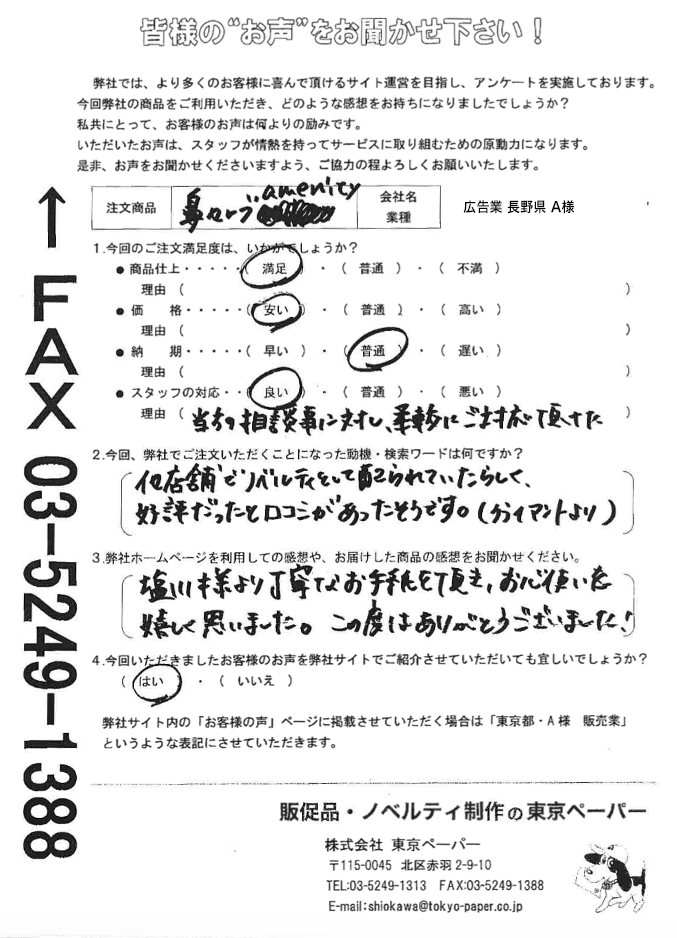 皆様の“お声”をお聞かせ下さい！
弊社では、より多くのお客様に喜んで頂けるサイト運営を目指し、アンケートを実施しております。
今回弊社の商品をご利用いただき、どのような感想をお持ちになりましたでしょうか？
私共にとって、お客様のお声は何よりの励みです。
いただいたお声は、スタッフが情熱を持ってサービスに取り組むための原動力になります。
是非、お声をお聞かせくださいますよう、ご協力の程よろしくお願いいたします。
←FAX 03-5249-1388
注文商品 鼻セレブ amenity 会社名 業種 広告業 長野県 A様
1.今回のご注文満足度は、いかがでしょうか？
● 商品仕上・・・・・（ 満足 ）・（ 普通 ）・（ 不満 ）
理由（ ）
● 価 格・・・・・（ 安い ）・（ 普通 ）・（ 高い ）
理由（ ）
● 納 期・・・・・（ 早い ）・（ 普通 ）・（ 遅い ）
理由（ ）
● スタッフの対応・・（ 良い ）・（ 普通 ）・（ 悪い ）
理由（ 当方の相談事に対し、柔軟にご対応頂けた ）
2.今回、弊社でご注文いただくことになった動機・検索ワードは何ですか？
他店舗でノベルティとして配られていたらしく、
好評だったと口コミがあったそうです。（クライアントより）
3.弊社ホームページを利用しての感想や、お届けした商品の感想をお聞かせください。
塩川様より丁寧なお手紙を頂き、お心使いを
嬉しく思いました。この度はありがとうございました！
4.今回いただきましたお客様のお声を弊社サイトでご紹介させていただいても宜しいでしょうか？
（ はい ）・（ いいえ ）
弊社サイト内の「お客様の声」ページに掲載させていただく場合は「東京都・A様 販売業」
というような表記にさせていただきます。
販促品・ノベルティ制作の東京ペーパー
株式会社 東京ペーパー
〒115-0045 北区赤羽2-9-10
TEL:03-5249-1313 FAX:03-5249-1388
E-mail:shiokawa@tokyo-paper.co.jp